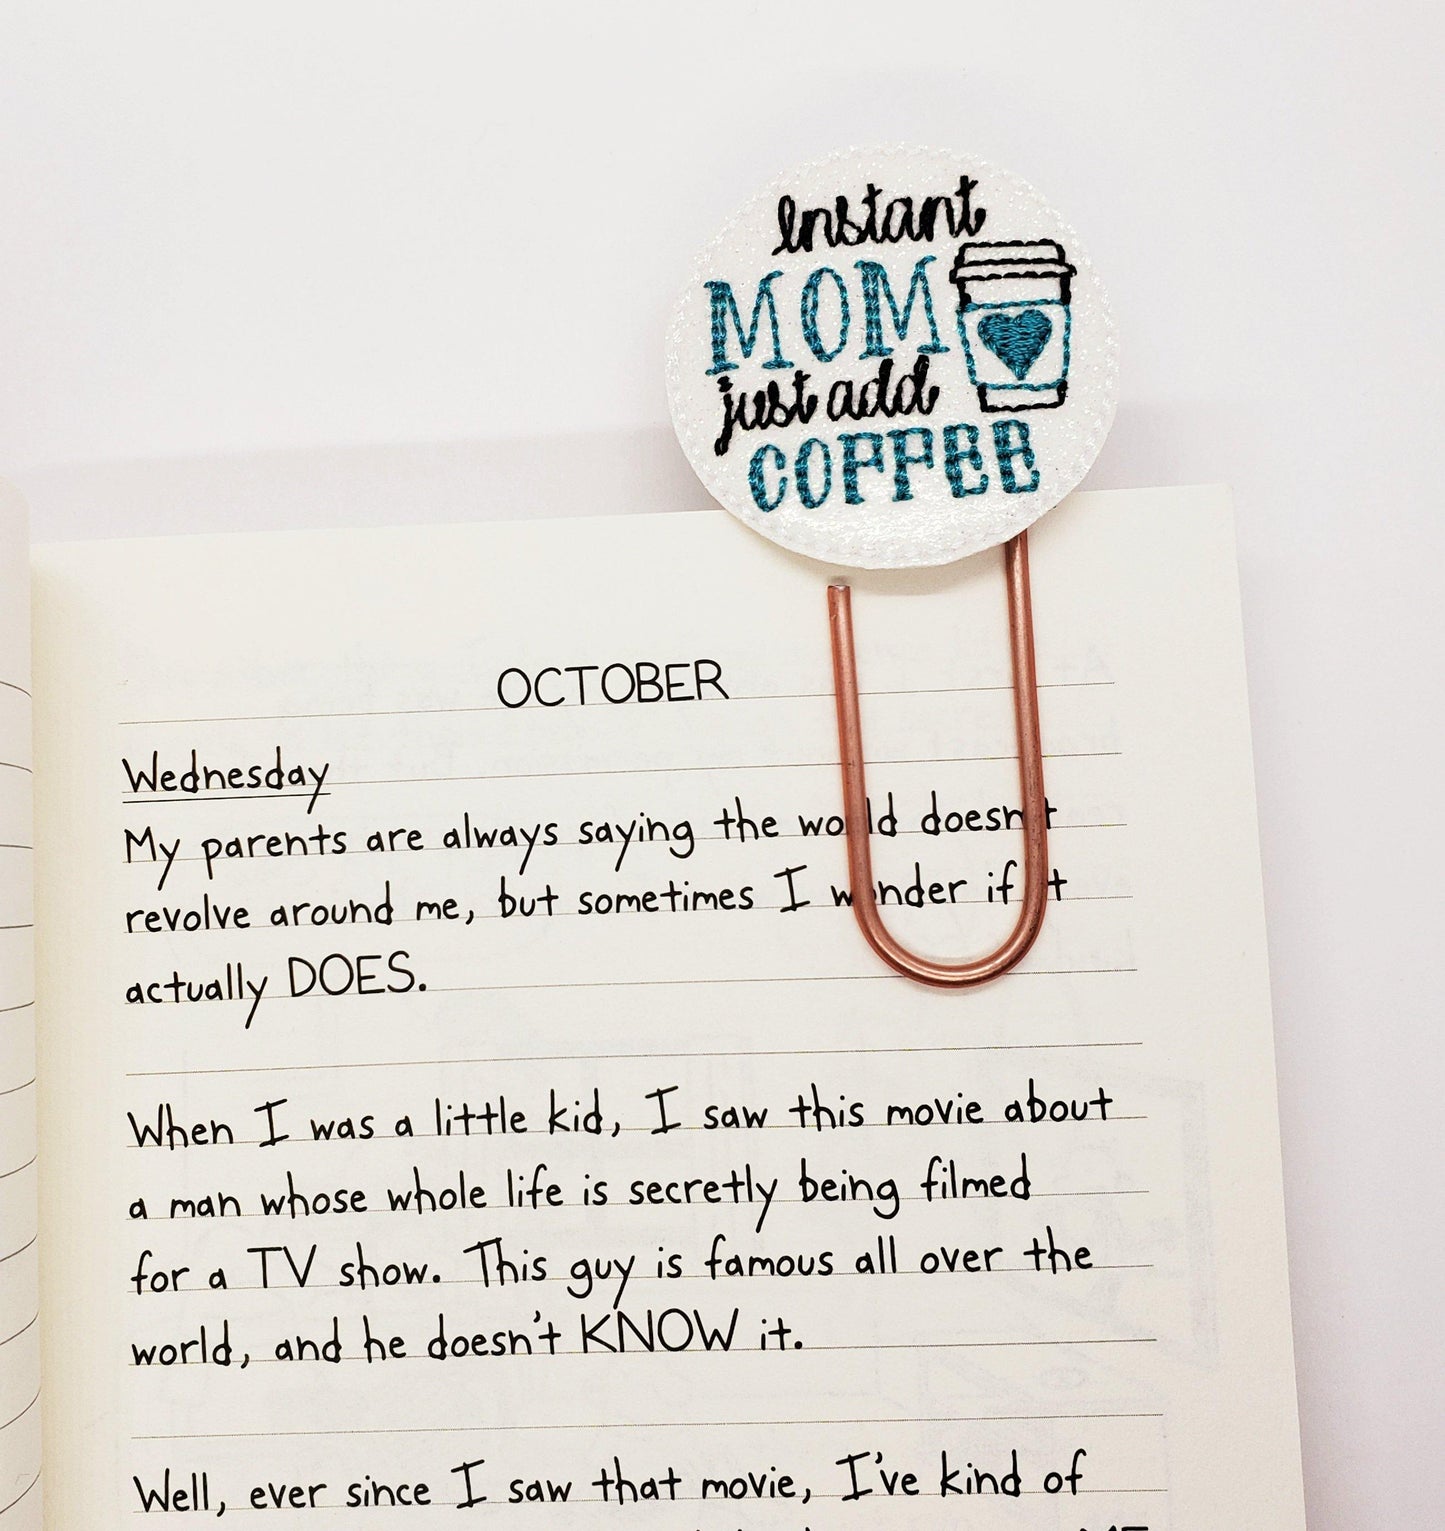 Instant
MOM
just add
COFFEE
OCTOBER
Wednesday
My parents are always saying the world doesn't
revolve around me, but sometimes I wonder if it
actually DOES.
When I was a little kid, I saw this movie about
a man whose whole life is secretly being filmed
for a TV show. This guy is famous all over the
world, and he doesn't KNOW it.
Well, ever since I saw that movie, I've kind of